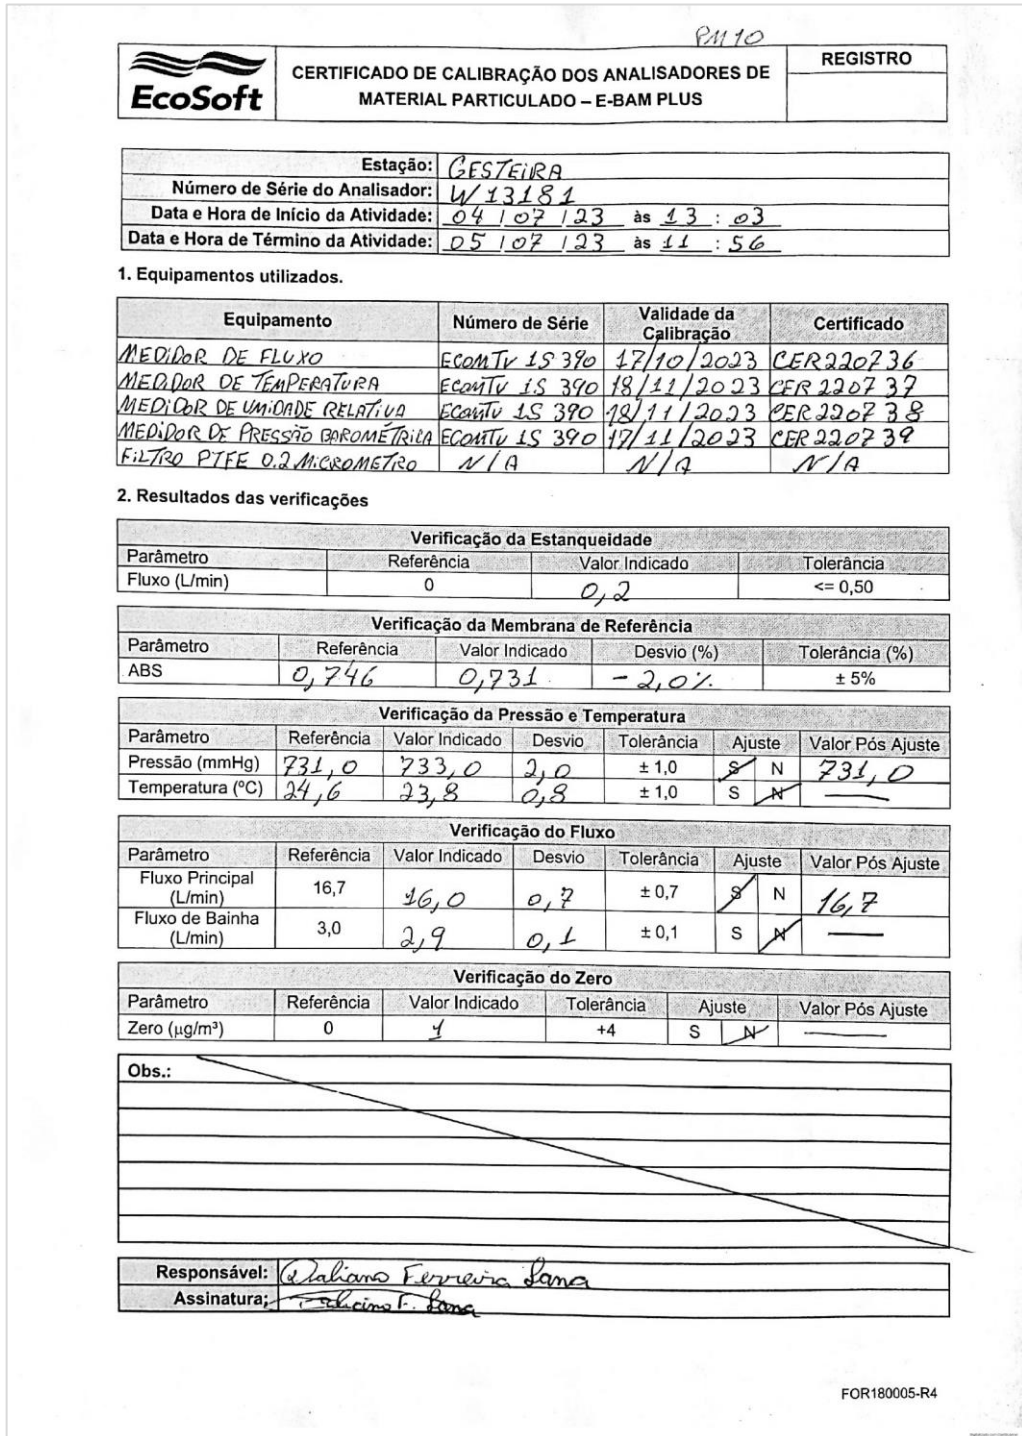 PM10
EcoSoft
CERTIFICADO DE CALIBRAÇÃO DOS ANALISADORES DE
MATERIAL PARTICULADO – E-BAM PLUS
REGISTRO
Estação: GESTEIRA
Número de Série do Analisador: W13181
Data e Hora de Início da Atividade: 04/07/23 às 13:03
Data e Hora de Término da Atividade: 05/07/23 às 11:56
1. Equipamentos utilizados.
Equipamento Número de Série Validade da Calibração Certificado
MEDIDOR DE FLUXO ECOMTV 1S 390 17/10/2023 CER220736
MEDIDOR DE TEMPERATURA ECOMTV 1S 390 18/11/2023 CER220737
MEDIDOR DE UMIDADE RELATIVA ECOMTV 1S 390 18/11/2023 CER220738
MEDIDOR DE PRESSÃO BAROMÉTRICA ECOMTV 1S 390 17/11/2023 CER220739
FILTRO PTFE 0.2 MICROMETRO N/A N/A N/A
2. Resultados das verificações
Verificação da Estanqueidade
Parâmetro Referência Valor Indicado Tolerância
Fluxo (L/min) 0 0,2 <= 0,50
Verificação da Membrana de Referência
Parâmetro Referência Valor Indicado Desvio (%) Tolerância (%)
ABS 0,746 0,731 -2,0% ± 5%
Verificação da Pressão e Temperatura
Parâmetro Referência Valor Indicado Desvio Tolerância Ajuste Valor Pós Ajuste
Pressão (mmHg) 731,0 733,0 2,0 ± 1,0 S N 731,0
Temperatura (ºC) 24,6 23,8 0,8 ± 1,0 S N —
Verificação do Fluxo
Parâmetro Referência Valor Indicado Desvio Tolerância Ajuste Valor Pós Ajuste
Fluxo Principal (L/min) 16,7 16,0 0,7 ± 0,7 S N 16,7
Fluxo de Bainha (L/min) 3,0 2,9 0,1 ± 0,1 S N —
Verificação do Zero
Parâmetro Referência Valor Indicado Tolerância Ajuste Valor Pós Ajuste
Zero (µg/m³) 0 1 +4 S N —
Obs.:
Responsável: Ferreira Lana
Assinatura: F. Lana
FOR180005-R4